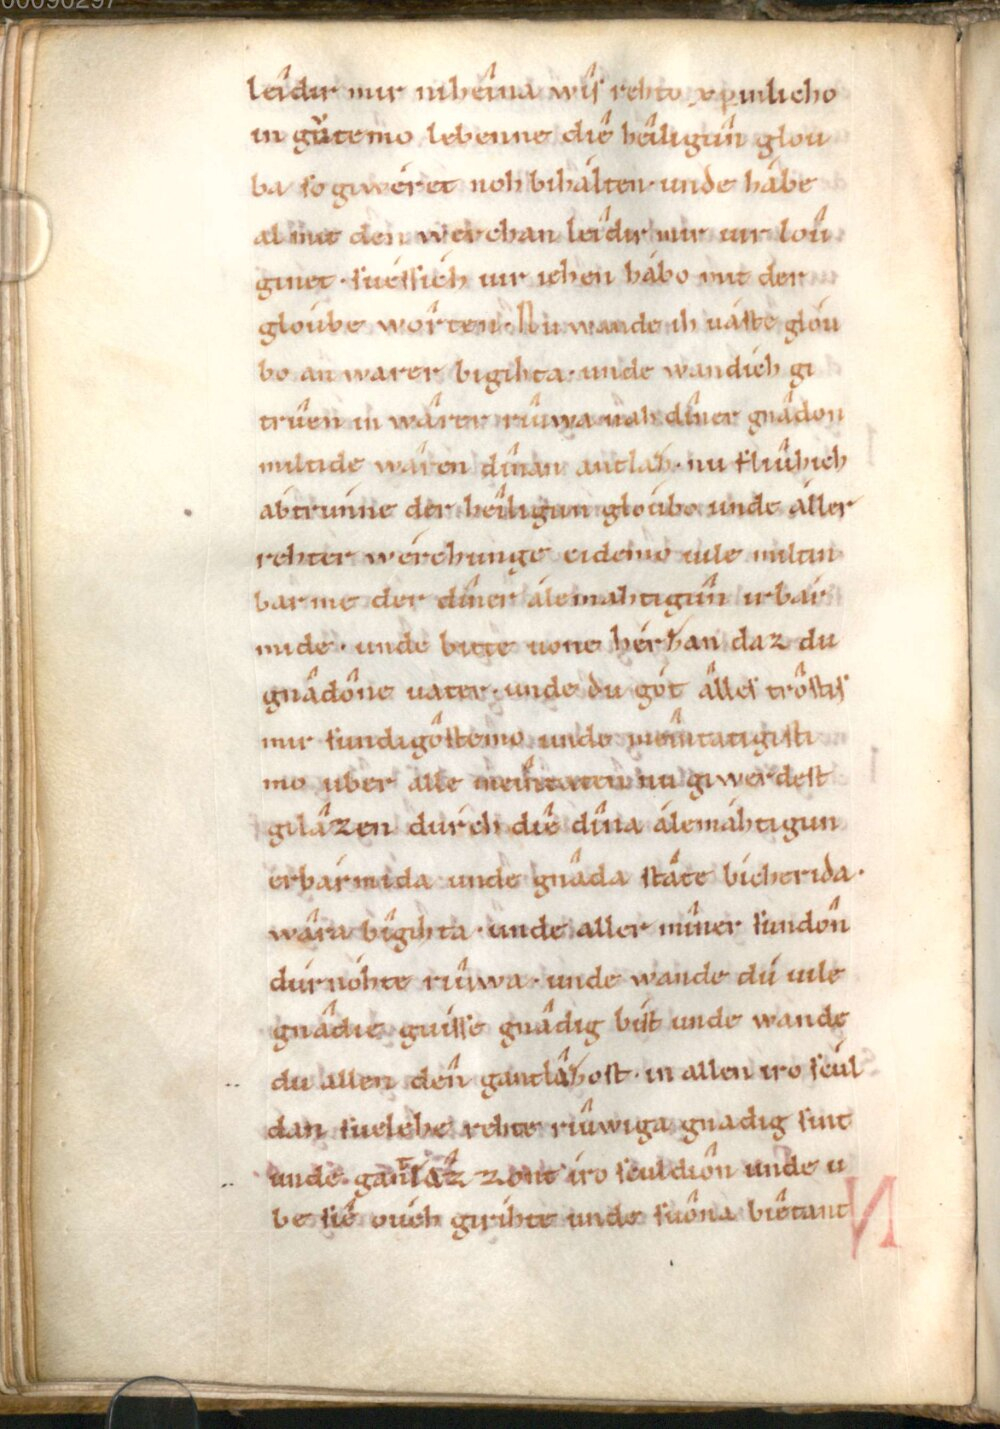 leîdir mir niheîna wîſ rehto xp̄inlicho
in gŭtemo lebenne diê heîligûn glou
ba ſo giwéret noh bihálten· unde hábe
al mit den werchan leîdir mir uir loû
ginet· ſuéſſich uir iehen hábo mit der
gloúbe wôrten· Nu wande ih uáſte gloú
bo an warer bigihta· unde wandich gi
trûen in wârer riûwa nah dîner gnâdon
miltide wáren dînan antlaẓ· nu fliûhich
abtrúnne der heîligun gloúbo unde áller
rehter wérchunge ci demo uile miltin
barme der dîner álemahtigûn irbár
mide· unde bitte uone hérẓan daz du
gnâdône uater· unde du gót álleſ trôſtiſ
mir ſundigôſtemo unde meîntatigiſti
mo uber alle meîntaten nu giwerdeſt
gilâzen durch diê dîna álemáhtigun
erbármida unde gnâda ſtâte bicherida·
wâra bîgihta· unde aller mîner ſundôn
dúrnóhte riûwa· unde wande dú uile
gnâdic guiſſe gnâdig biſt unde wande
du allen dên gantlâẓoſt· in allen iro ſcúl
dan ſuelehe rehte riûwiga gnadig ſint
unde gantlâz zont iro ſculdiôn unde u
be ſiê oúch girihte unde ſuôna biêtant
N